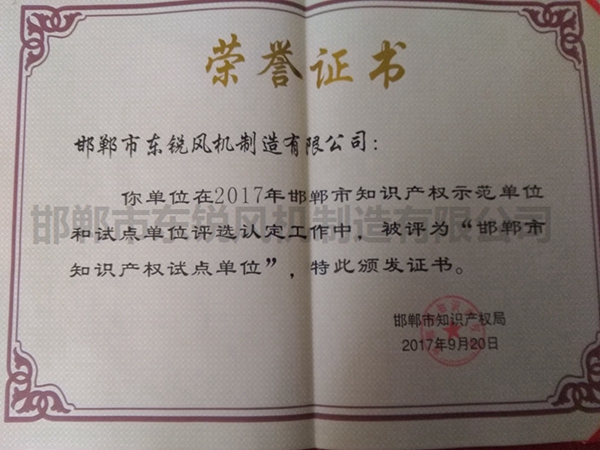 荣誉证书
邯郸市东锐风机制造有限公司：
你单位在2017年邯郸市知识产权示范单位
和试点单位评选认定工作中，被评为“邯郸市
知识产权试点单位”，特此颁发证书。
邯郸市东锐风机制造有限公司
邯郸市知识产权局
2017年9月20日